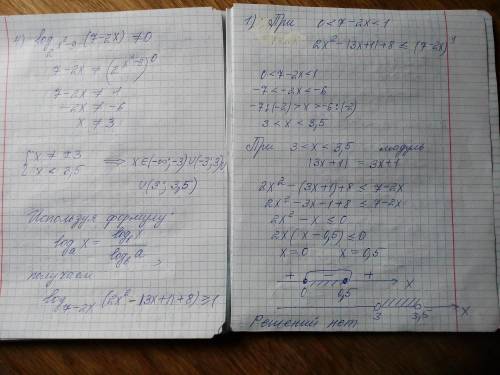 4) log_{2^{x²-9}} (7-2x) ≠ 0
7-2x ≠ (2^{x²-9})^0
7-2x ≠ 1
-2x ≠ -6
x ≠ 3
{ x ≠ ±3
{ x < 3,5 ⟹ x∈(-∞;-3)∪(-3;3)∪
∪(3; 3,5)
Используя формулу:
log_a x = log_b x / log_b a ,
получаем
log_{7-2x} (2x²-|3x+1|+8) ≥ 1
1) При 0<7-2x<1
2x²-|3x+1|+8 ≤ (7-2x)^1
0<7-2x<1
-7<-2x<-6
-7:(-2)>x>-6:(-2)
3<x<3,5
При 3<x<3,5 модуль
|3x+1| = 3x+1
2x²-(3x+1)+8 ≤ 7-2x
2x²-3x-1+8 ≤ 7-2x
2x²-x ≤ 0
2x(x-0,5) ≤ 0
x=0 x=0,5
+ - + x
0 0,5
3 3,5 x
Решений нет